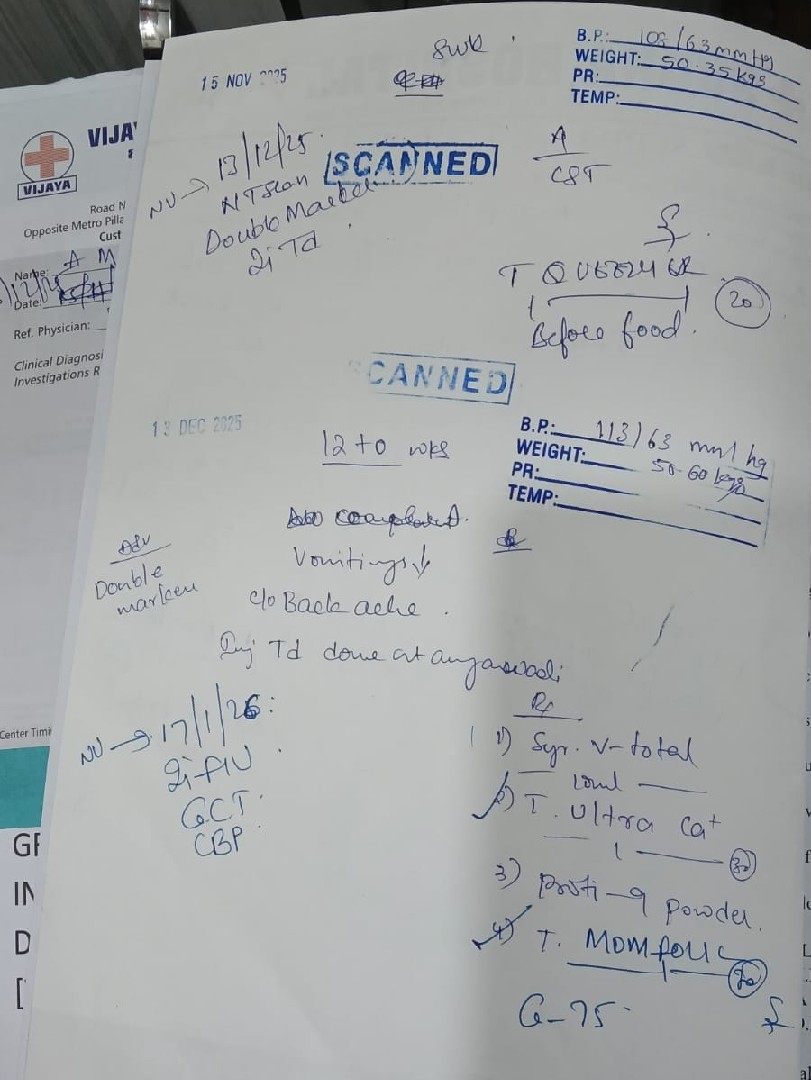 VIJAYA
VIJAY
Road N
Opposite Metro Pilla
Cust
Name: A M
Date:
Ref. Physician:
Clinical Diagnosi
Investigations R
Center Timi
GE
IN
D
[
15 NOV 2025
8wk
B.P.: 108/63 mmHg
WEIGHT: 50.35 kgs
PR:
TEMP:
NV → 13/12/25.
SCANNED
NT Scan
Double Marker
Inj Td
A
CST
T
1 1
Before food.
20
SCANNED
13 DEC 2025
12+0 wks
B.P.: 113/63 mm/hg
WEIGHT: 50.60 kgs
PR:
TEMP:
Adv
Double
marker
Vomitings ↓
c/o Back ache.
Inj Td done at anganwadi
NV → 17/1/26:
GCT.
CBP
Rx
1) Syr. V-total
10ml
2) T. Ultra Ca+
1 30
3) Proti-9 powder.
4) T. MOMFOLIC
1 30
G-75